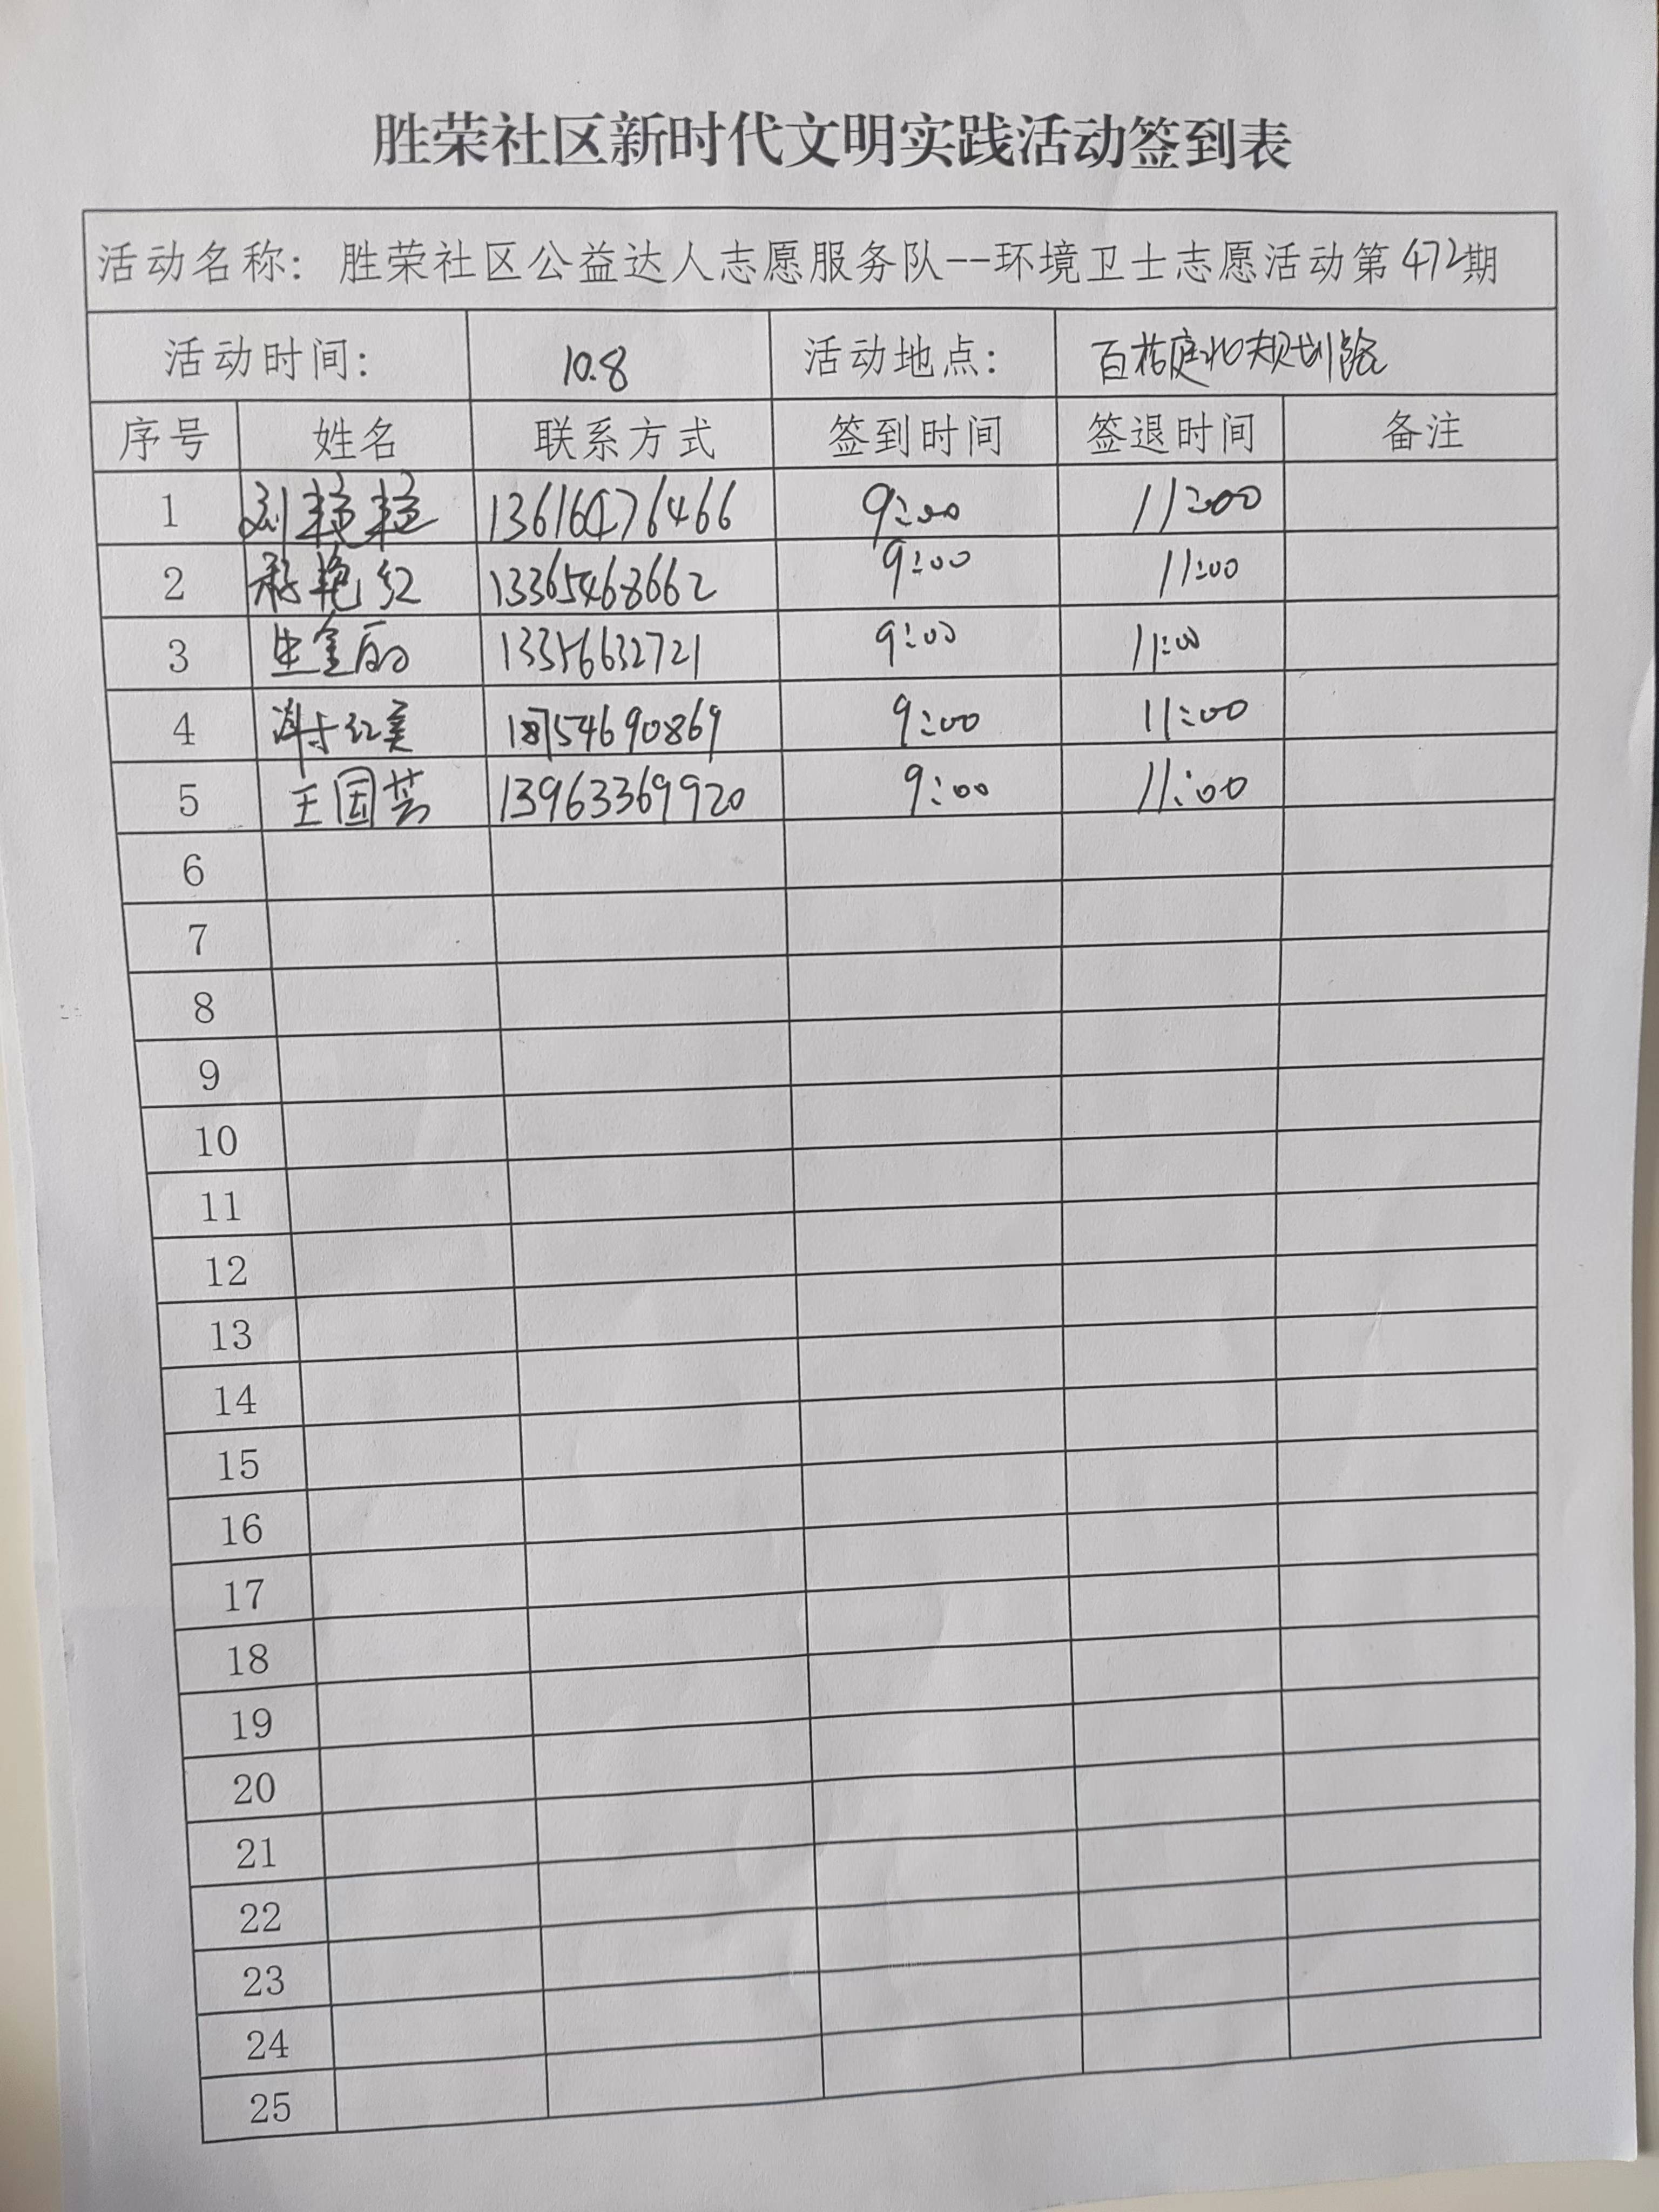 胜荣社区新时代文明实践活动签到表
活动名称：胜荣社区公益达人志愿服务队--环境卫士志愿活动第472期
活动时间： 10.8 活动地点： 百桔庭北规划路
序号 姓名 联系方式 签到时间 签退时间 备注
1 刘 13616476466 9:00 11:00
2 艳红 13365468662 9:00 11:00
3 生金 13356632721 9:00 11:00
4 谢红美 18754690869 9:00 11:00
5 王国芸 13963369920 9:00 11:00
6
7
8
9
10
11
12
13
14
15
16
17
18
19
20
21
22
23
24
25